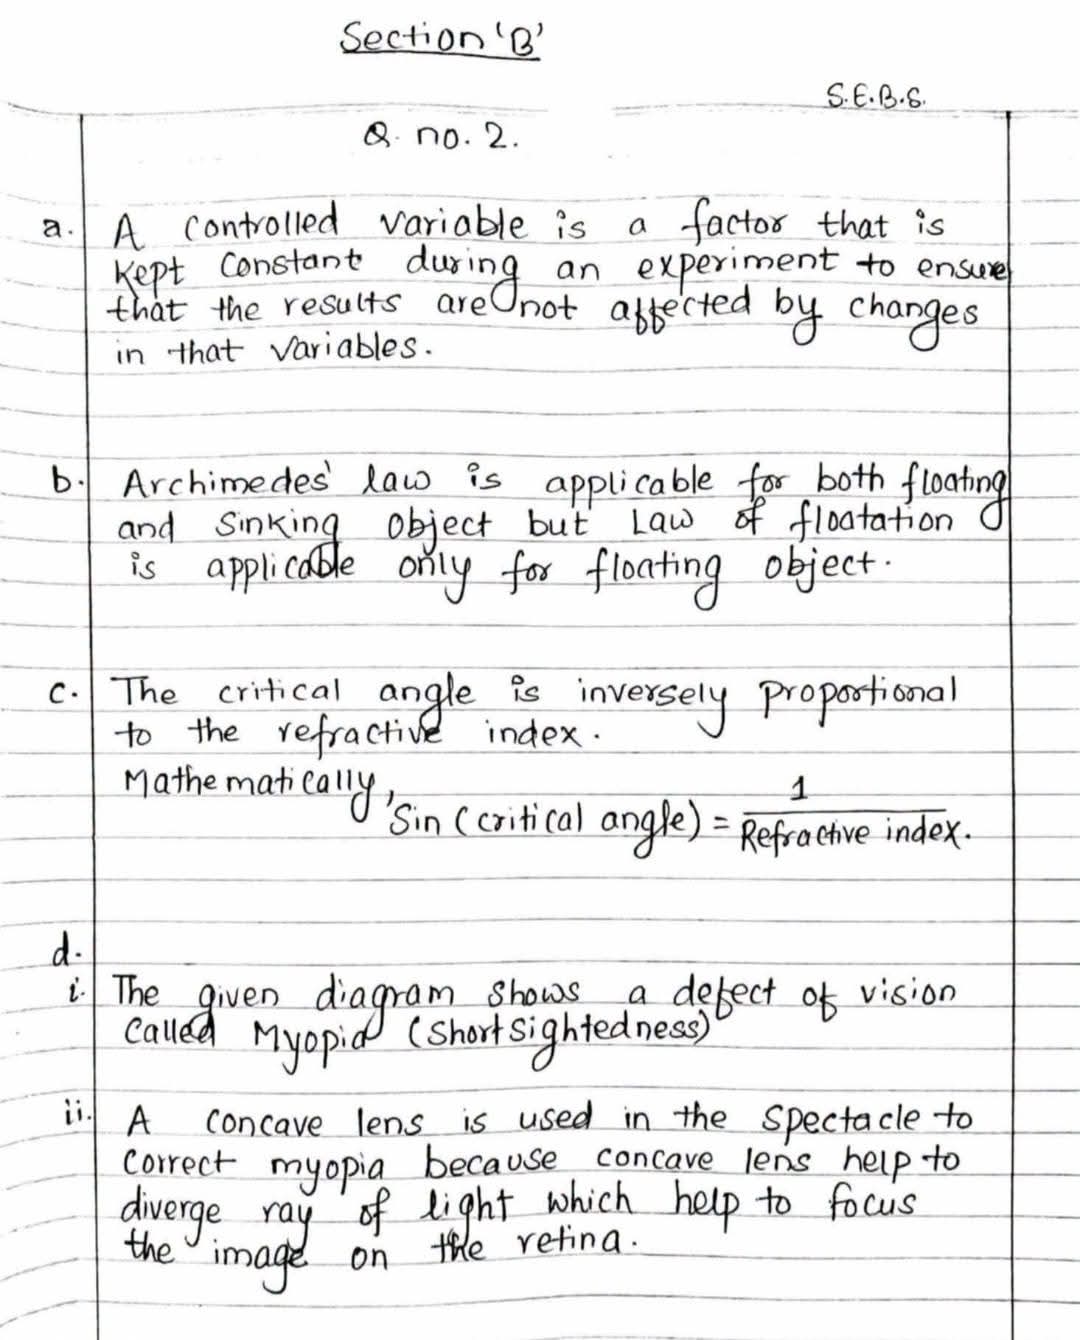 Section 'B'
S.E.B.S.
Q. no. 2.
a. A controlled variable is a factor that is
kept constant during an experiment to ensure
that the results are not affected by changes
in that variables.
b. Archimedes' law is applicable for both floating
and sinking object but Law of floatation
is applicable only for floating object.
c. The critical angle is inversely proportional
to the refractive index.
Mathematically,
Sin (critical angle) = 1
Refractive index.
d.
i. The given diagram shows a defect of vision
called Myopia (Shortsightedness)
ii. A concave lens is used in the spectacle to
correct myopia because concave lens help to
diverge ray of light which help to focus
the image on the retina.